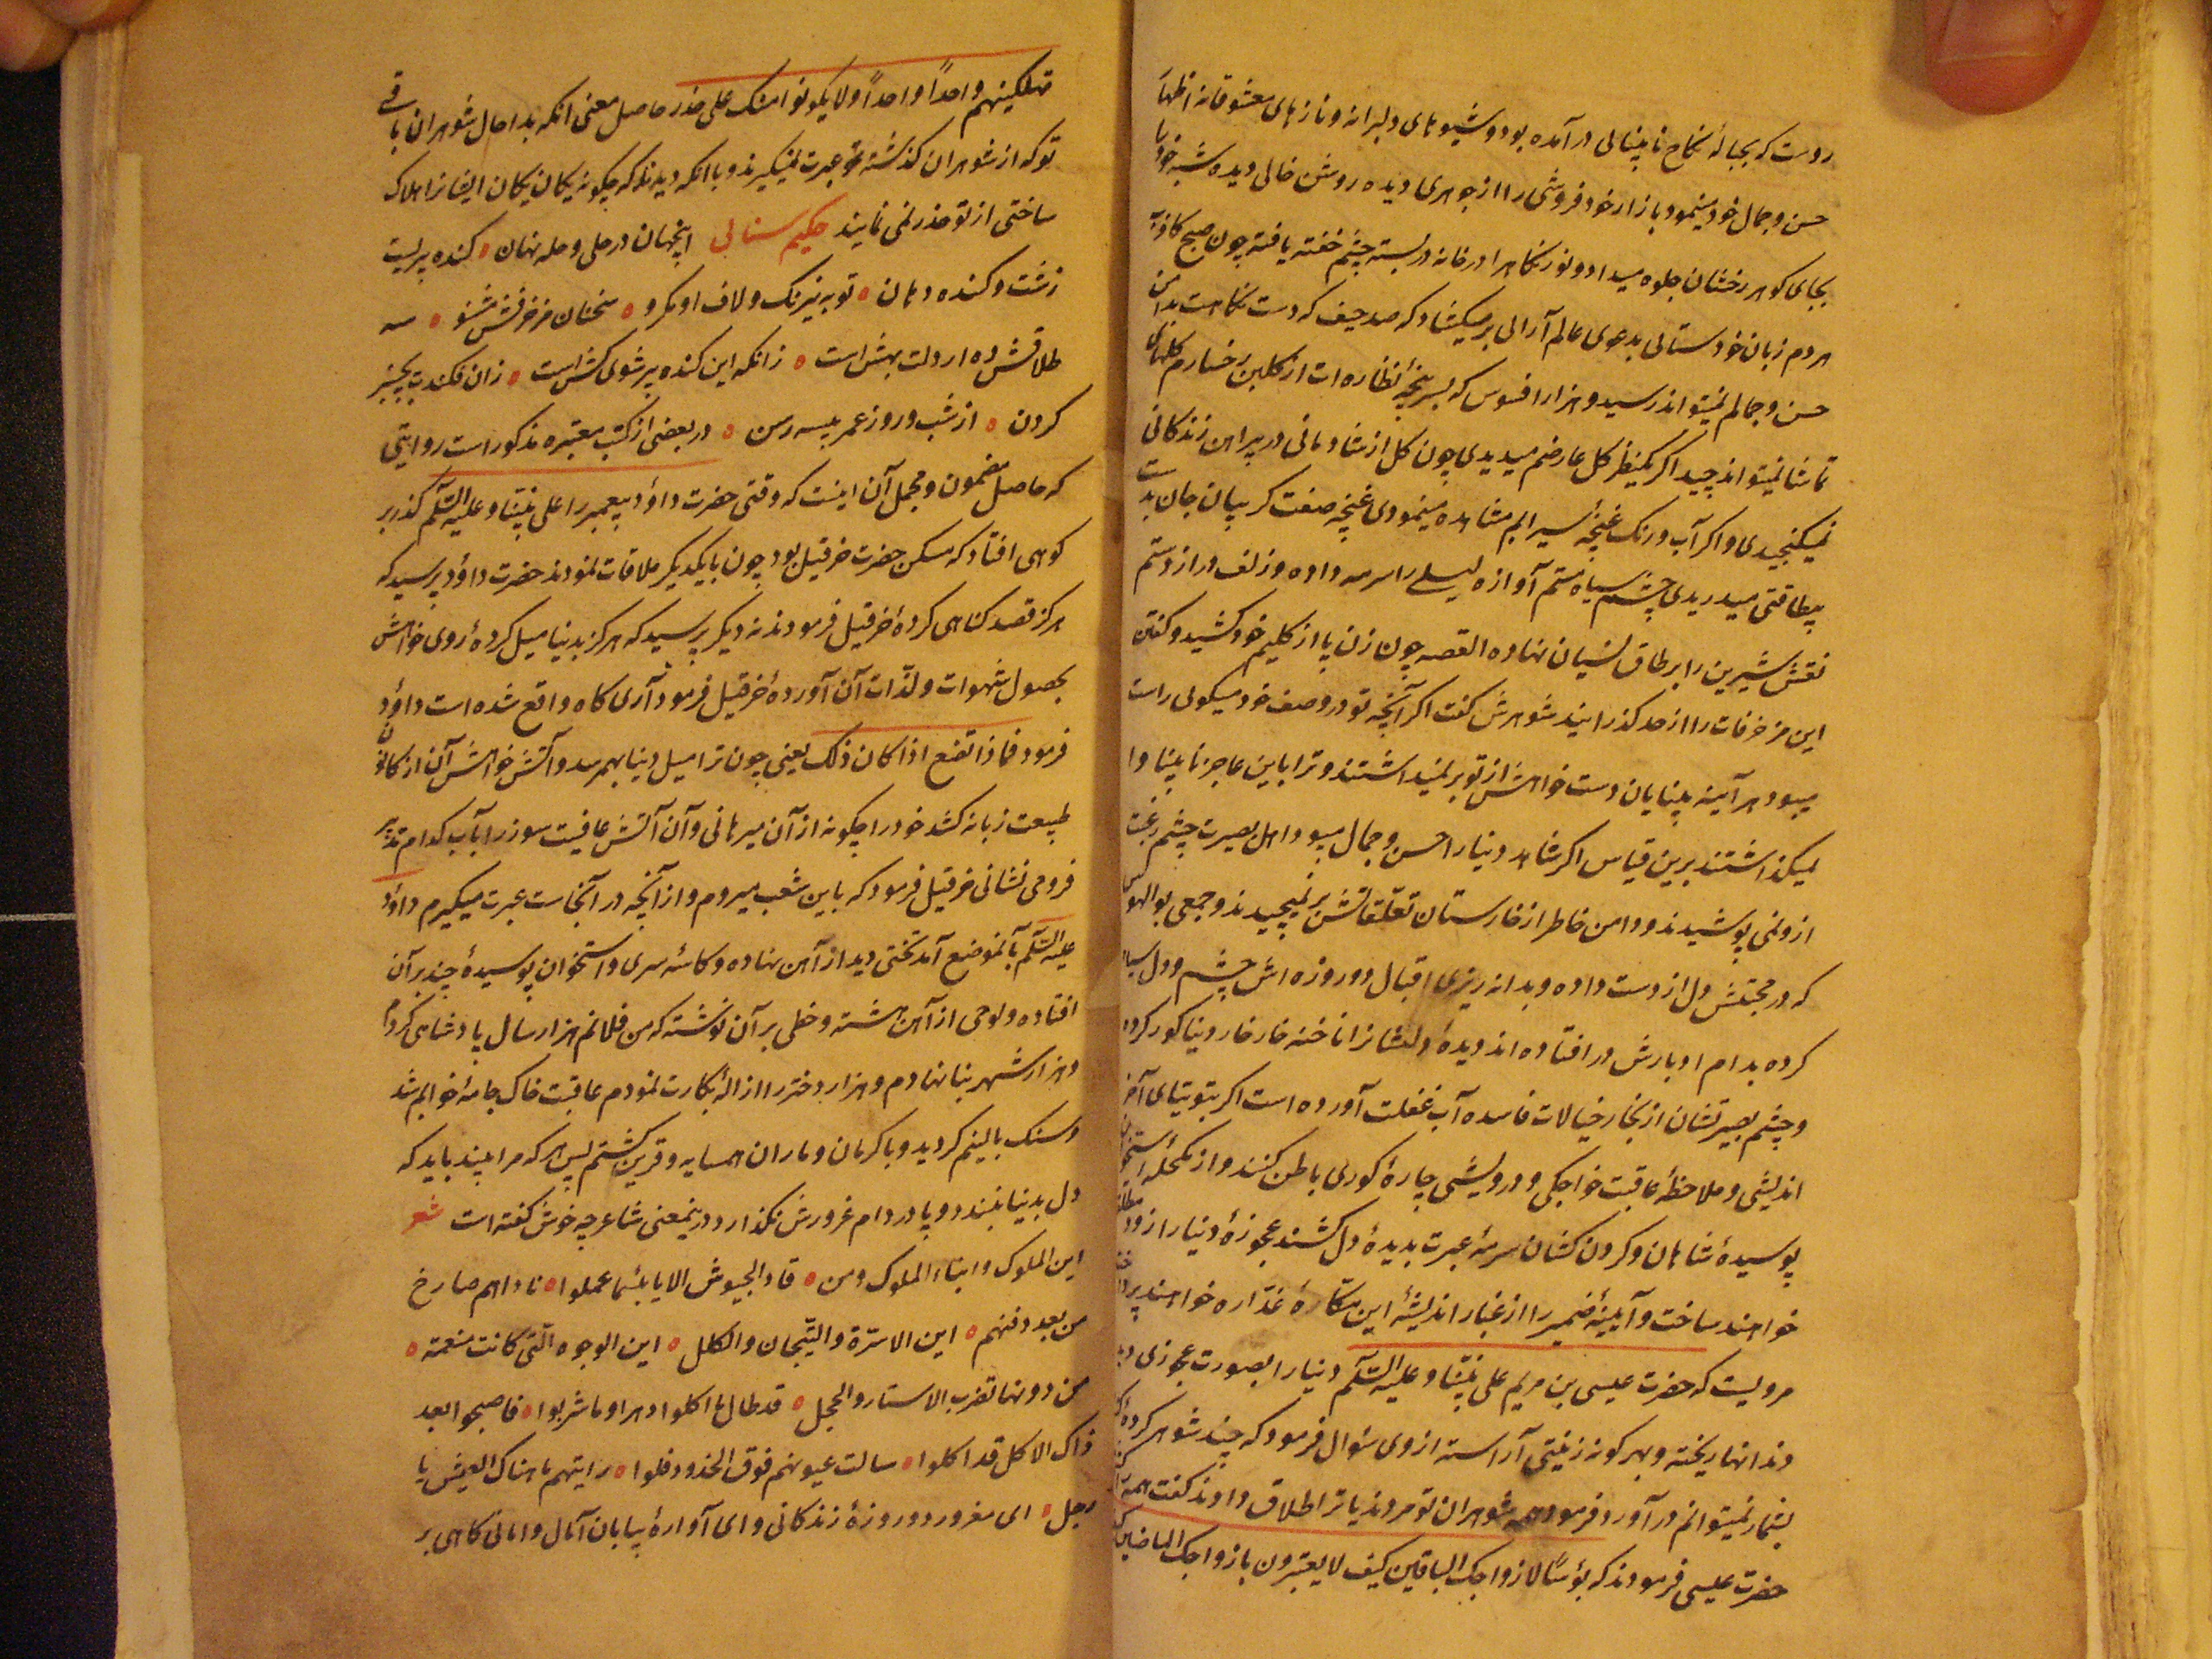 روست که بحبالهٔ نکاح نابینائی درآمده بود و شیوهای دلبرانه و نازهای معشوقانه اظهار
حسن و جمال خود مینمود بازار خودفروشی را از جوهری دیده روشن خالی دیده شبه خود را
بجای کوهر رخشان جلوه میداد و نوز نکاهرا در خانه دربسته چشم خفته یافته چون صبح کاذب
هر دم زبان خودستائی بدعوی عالم آرائی بر میکشاد که صد حیف که دست نکاهت بدامن
حسن و جمالم نمیتواند رسید و هزار افسوس که بسر پنجهٔ نظاره ات از کلبن رخسارم کلهای
تماشا نمیتواند چید اکر یکنظر کل عارضم میدیدی چون کل از شادمانی در پیراهن زندکانی
نمیکنجیدی و اکر آب و رنک غنچهٔ سیرابم مشاهده مینمودی غنچه صفت کریبان جان بدست
بیطاقتی میدریدی چشم سیاه مستم آوازه لیلی را سرمه داده و زلف دراز دستم
نقش شیرین را بر طاق نسیان نهاده القصه چون زن پا از کلیم خود کشید و کفتن
این مزخرفات را از حد کذرانید شوهرش کفت اکر آنچه تو در وصف خود میکوئی راست
میبود هر آینه بینایان دست خواهش از تو بر نمیداشتند و ترا باین عاجز نابینا وا
نمیکذاشتند برین قیاس اکر شاهد دنیا را حسن و جمال میبود اهل بصیرت چشم رغبت
ازو نمی پوشیدند و دامن خاطر از خارستان تعلقاتش بر نمیچیدند و جمعی بوالهوس
که در محبتش دل از دست داده و بدانه ریزی اقبال دو روزه اش چشم و دل سیاه
کرده بدام ادبارش در افتاده اند دیدهٔ دلشانرا ناخنه خار خار دنیا کور کرده
و چشم بصیرتشان از بخار خیالات فاسده آب غفلت آورده است اکر بتوتیای آخر
اندیشی و ملاحظهٔ عاقبت خواجکی و درویشی چارهٔ کوری باطن کنند و از مکحلهٔ استخوان
پوسیدهٔ شاهان و کردن کشان سرمهٔ عبرت بدیدهٔ دل کشند عجوزهٔ دنیا را ازو مطلقه
خواهند ساخت و آیینهٔ ضمیر را از غبار اندیشهٔ این مکّارهٔ غدّاره خواهند پرداخت
مرویست که حضرت عیسی بن مریم علی نبیّنا و علیه السّلم دنیا را بصورت عجوزی دید
دندانها ریخته و بهر کونه زینتی آراسته از وی سٔوال فرمود که چند شوهر کردهٔ
بشمار نمیتوانم درآورد فرمود همه شوهران تو مردند یا ترا طلاق دادند کفت همه را
حضرت عیسی فرمودند که بؤسًا لازواجک الباقین کیف لا یعتبرون بازواجک الماضین
تهلکینهم واحداً واحداً و لا یکونوا منک علی حذر حاصل معنی انکه بدا حال شوهران باقی
تو که از شوهران کذشته تو عبرت نمیکیرند و با انکه دیدند که چکونه یکان یکان ایشانرا هلاک
ساختی از تو حذر نمی نمایند حکیم سنائی اینجهان در حلی و حله نهان ٥ کنده پیریست
زشت و کنده دهان ٥ تو به نیرنک و لاف او مکرو ٥ سخنان مزخرفش مشنو ٥ سه
طلاقش ده ار دلت بهش است ٥ زانکه این کنده پیر شوی کش است ٥ زان فکندت بچنبر
کردن ٥ از شب و روز عمر پیسه رسن ٥ در بعضی از کتب معتبره مذکور است روایتی
که حاصل مضمون و مجمل آن اینست که وقتی حضرت داؤد پیغمبر را علی نبیّنا و علیه السّلم کذر بر
کوهی افتاد که مسکن حضرت خرقیل بود چون بایکدیکر ملاقات نمودند حضرت داؤد پرسید که
هرکز قصد کناهی کردهٔ خرقیل فرمودند نه دیکر پرسید که هرکز بدنیا میل کردهٔ روی خواهش
بحصول شهوات و لذّات آن آوردهٔ خرقیل فرمود آری کاه واقع شده است داؤد
فرمود فماذا تصنع اذا کان ذلک یعنی چون ترا میل دنیا بهمرسد و آتش خواهش آن از کانون
طبیعت زبانه کشد خود را چکونه از آن میرهانی و آن آتش عافیت سوز را بآب کدام تدبیر
فرو می نشانی خرقیل فرمود که باین شعب میروم و از آنچه در آنجاست عبرت میکیرم داؤد
علیه السّلم بآنموضع آمد تختی دید از آهن نهاده و کاسهٔ سری و استخوان پوسیدهٔ چند بر آن
افتاده و لوحی از آهن هشته و خطی بر آن نوشته که من فلانم هزار سال پادشاهی کردم
و هزار شهر بنا نهادم و هزار دختر را ازالهٔ بکارت نمودم عاقبت خاک جامهٔ خوابم شد
و سنک بالینم کردید و با کرمان و ماران همسایه و قرین کشتم پس هر که مرا بیند باید که
دل بدنیا نبندد و پا در دام غرورش نکذارد درینمعنی شاعر چه خوش کفته است شعر
این الملوک و ابناء الملوک و من ٥ قاد الجیوش الا یا بئسما عملوا ٥ ناداهم صارخ
من بعد دفنهم ٥ این الاسرّة و التّیجان و الکلل ٥ این الوجوه الّتی کانت منعمة ٥
من دونها تضرب الاستار و الحجل ٥ قد طال ما اکلوا دهرا و ما شربوا ٥ فاصبحوا بعد
ذاک الاکل قد اکلوا ٥ سالت عیونهم فوق الخدود فلوا ٥ رایتهم ما هناک العیش یا
رجل ٥ ای مغرور دو روزهٔ زندکانی و ای آوارهٔ بیابان آمال و امانی کاهی بر